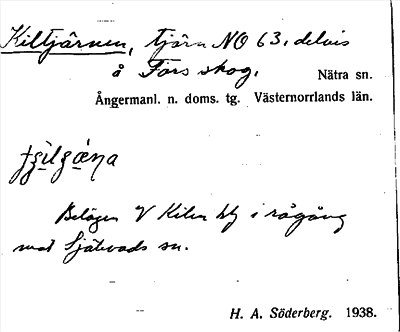 Kiltjärnen, tjärn NO 63, delvis
å Fors skog. Nätra sn.
Ångermanl. n. doms. tg. Västernorrlands län.
Belägen V Kilen i rågång
med Själevads sn.
H. A. Söderberg. 1938.